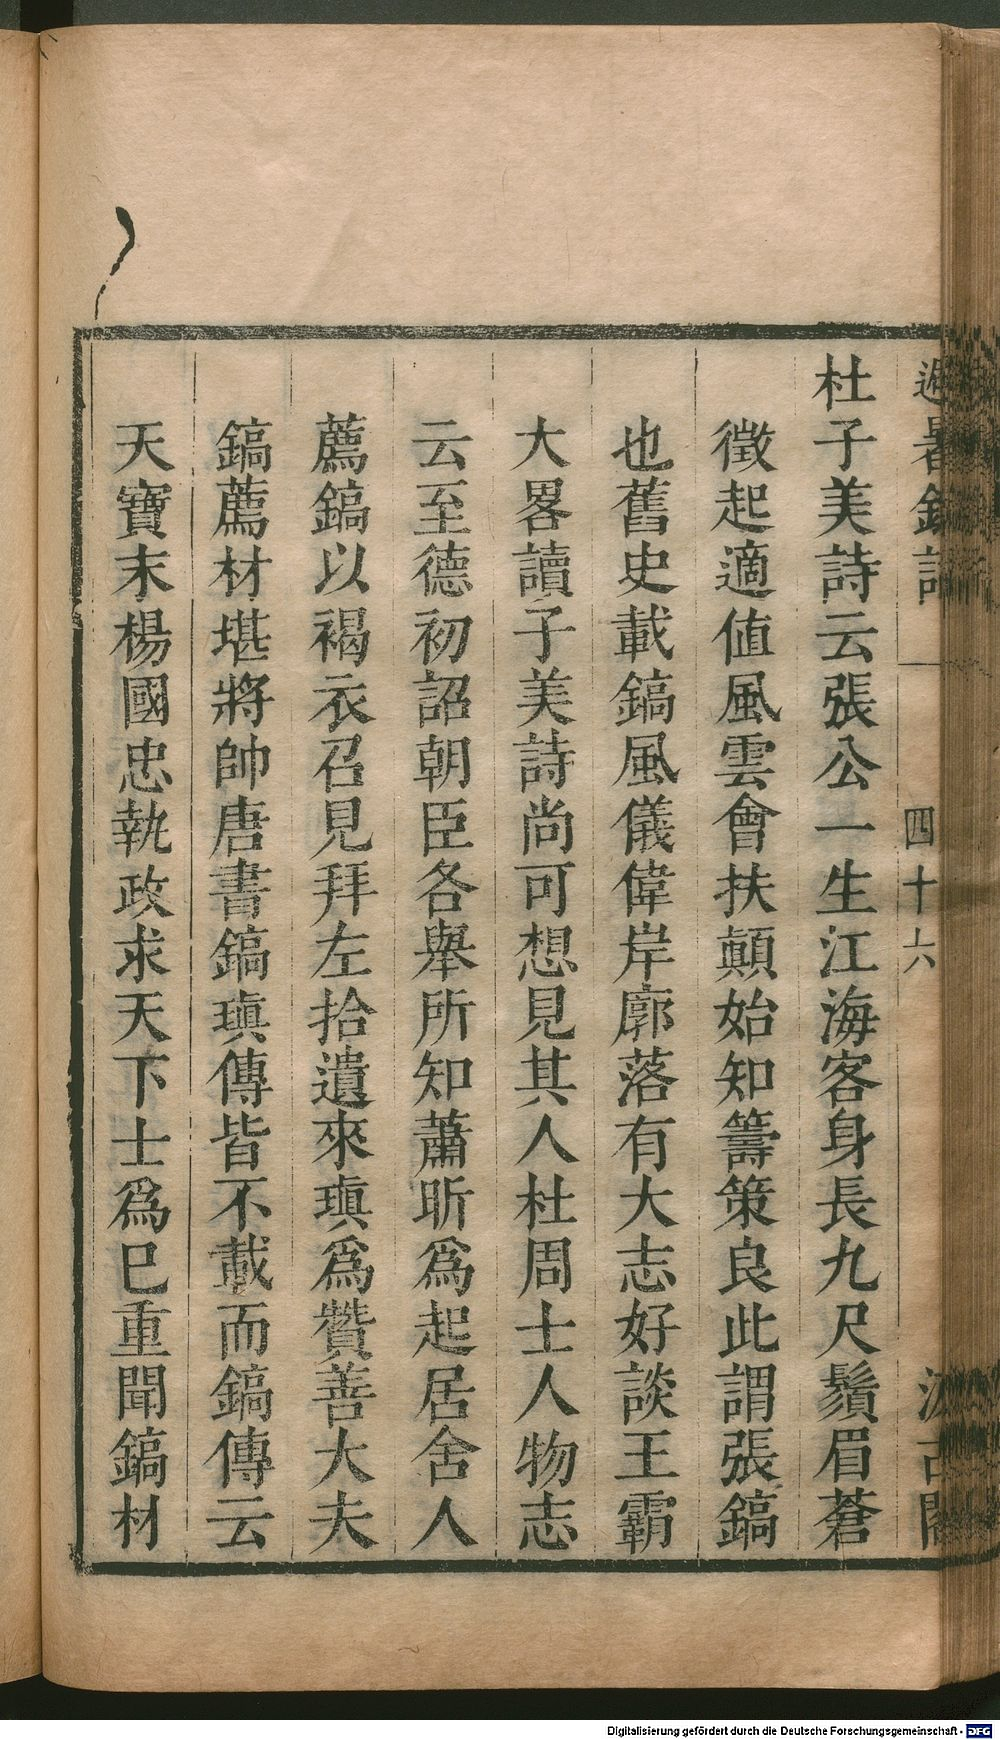 避暑錄話 四十六 汲古閣
杜子美詩云張公一生江海客身長九尺鬚眉蒼
徵起適值風雲會扶顛始知籌策良此謂張鎬
也舊史載鎬風儀偉岸廓落有大志好談王霸
大畧讀子美詩尚可想見其人杜周士人物志
云至德初詔朝臣各舉所知蕭昕為起居舍人
薦鎬以褐衣召見拜左拾遺來瑱為贊善大夫
鎬薦材堪將帥唐書鎬瑱傳皆不載而鎬傳云
天寶末楊國忠執政求天下士爲巳重聞鎬材
Digitalisierung gefördert durch die Deutsche Forschungsgemeinschaft - DFG